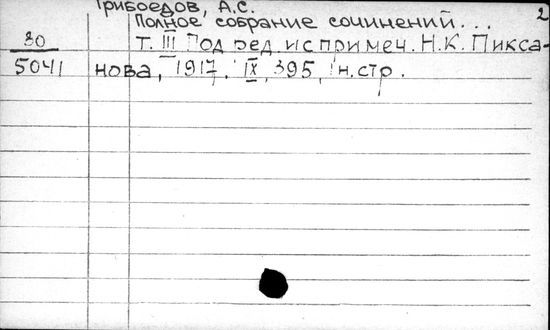 Грибоедов, А.С.
2
Полное собрание сочинений...
80
Т. III Под ред. и с примеч. Н.К. Пикса-
5041
нова, 1917. IX, 395, 1 н. стр.